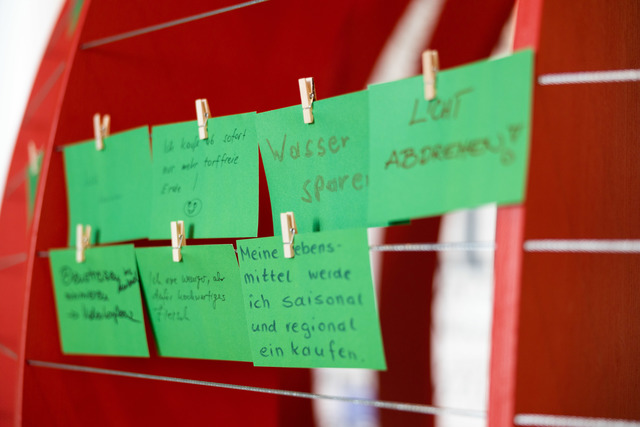 Ich kaufe ab sofort
nur mehr torffreie
Erde!
Wasser
sparen
LICHT
ABDREHEN!
Ich esse weniger, aber
dafür hochwertiges
Fleisch
Meine Lebens-
mittel werde
ich saisonal
und regional
einkaufen.